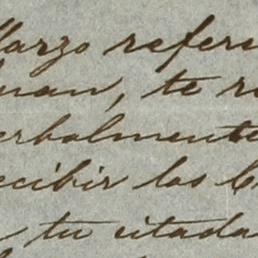 Marzo refere
Juan, te re
erbalmente
ecibir los C
tu citada